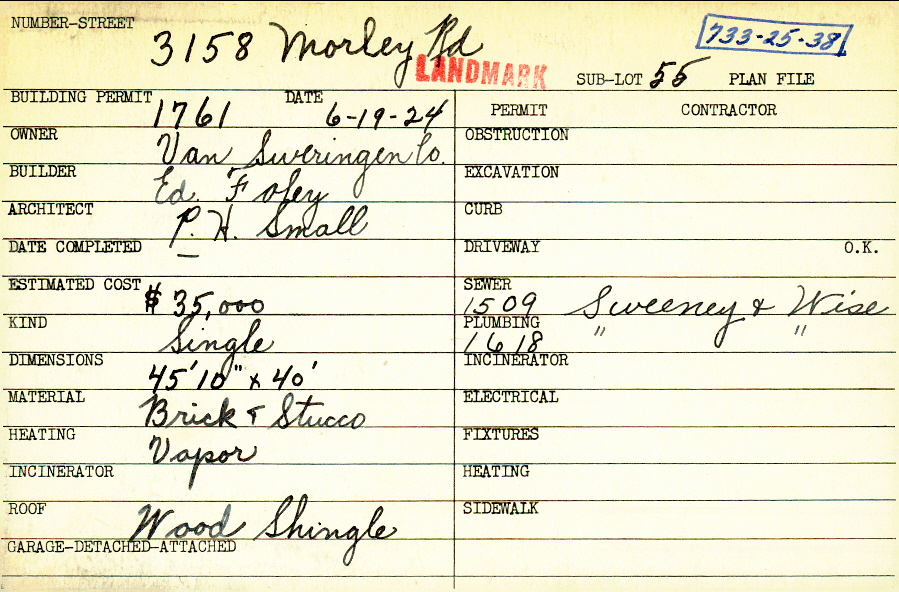 NUMBER-STREET 3158 Morley Rd 733-25-38
LANDMARK SUB-LOT 55 PLAN FILE
BUILDING PERMIT 1761 DATE 6-19-24 PERMIT CONTRACTOR
OWNER Van Sweringen Co. OBSTRUCTION
BUILDER Ed. Foley EXCAVATION
ARCHITECT P. H. Small CURB
DATE COMPLETED — DRIVEWAY O.K.
ESTIMATED COST $35,000 SEWER 1509 Sweeney & Wise
KIND Single PLUMBING 1618 " "
DIMENSIONS 45'10" x 40' INCINERATOR
MATERIAL Brick & Stucco ELECTRICAL
HEATING Vapor FIXTURES
INCINERATOR HEATING
ROOF Wood Shingle SIDEWALK
GARAGE-DETACHED-ATTACHED